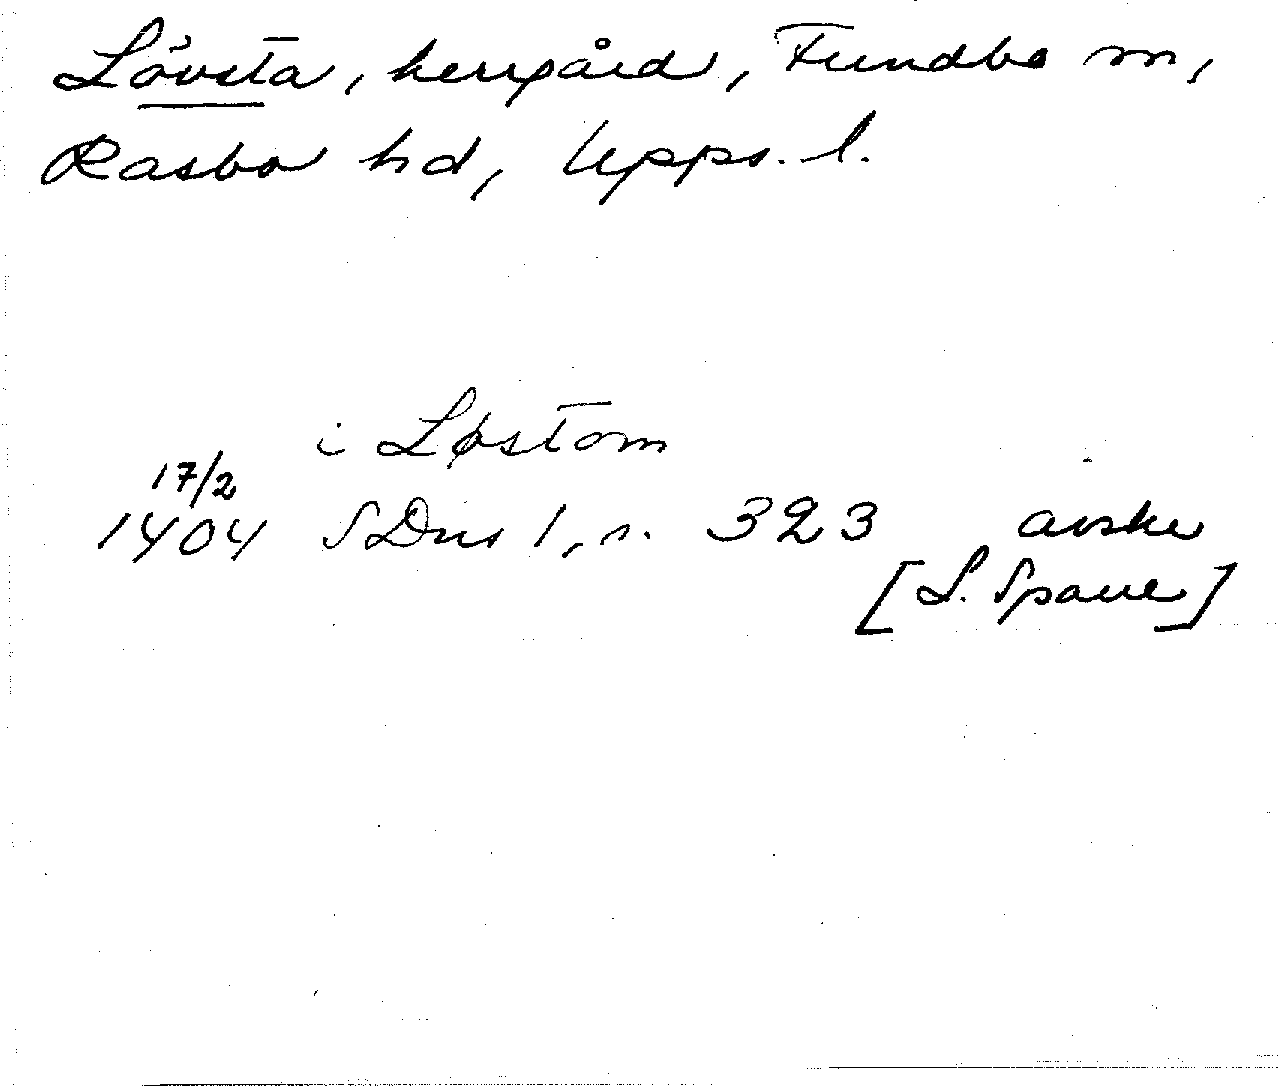 Lövsta, herrgård, Funbo sn,
Rasbo hd, Upps. l.
i Løstom
17/2
1404 SDns 1, s. 323 avskr
[S.